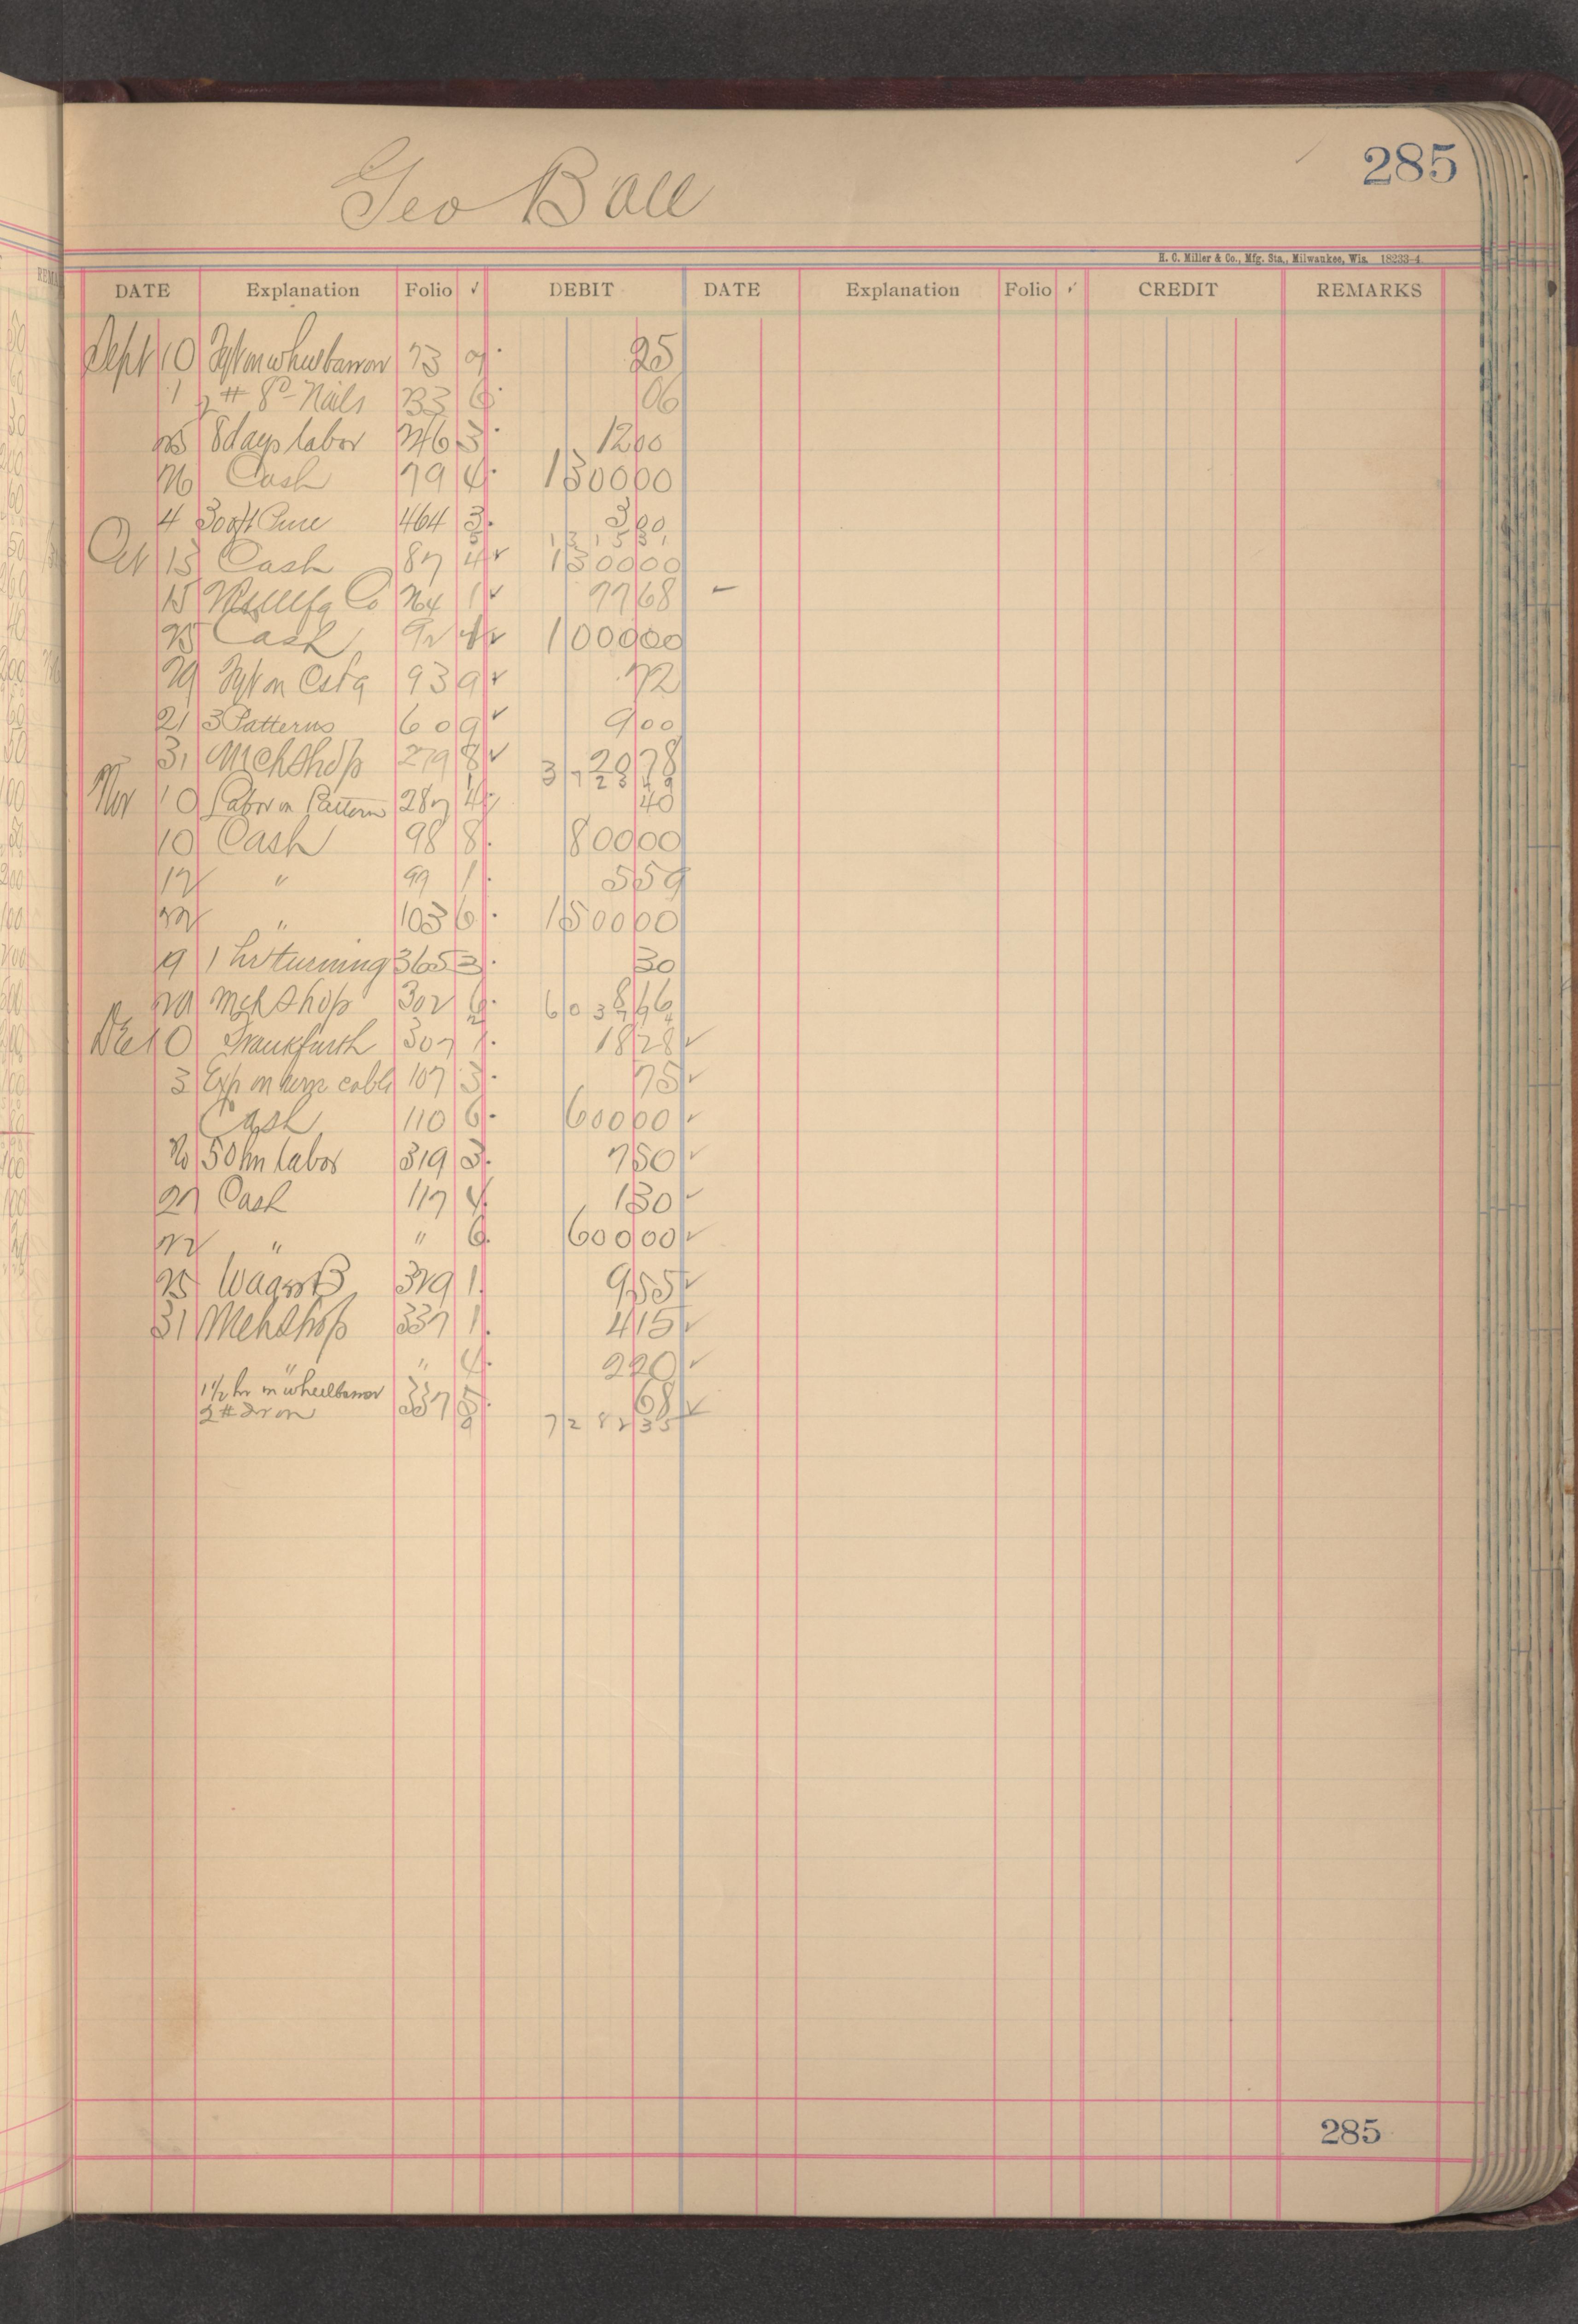 285
Geo Ball
H. C. Miller & Co., Mfg. Sta., Milwaukee, Wis. 18233-4
DATE Explanation Folio ✓ DEBIT DATE Explanation Folio ✓ CREDIT REMARKS
Sept 10 Frt on wheelbarrow 73 9 25
1 2 # 8D Nails 233 6 06
25 8 days labor 246 3 12 00
26 Cash 79 4 1300 00
4 300ft 464 3 3 00
1315 31
Oct 13 Cash 87 4 ✓ 1300 00
15 Mfg Co 264 1 ✓ 77 68 –
25 Cash 92 4 ✓ 1000 00
29 Frt on Castg 93 9 ✓ 72
21 3 Patterns 60 9 ✓ 9 00
31 Mch Shop 279 8 ✓ 20 78
Nov 10 Labor on Pattern 287 4 40
10 Cash 98 8 800 00
12 " 99 1 5 59
22 " 103 6 1500 00
9 1 hr turning 365 3 30
29 Mch Shop 302 6
Dec 10 Frankfurth 307 1 18 28 ✓
3 Exp on 107 3 75 ✓
Cash 110 6 600 00 ✓
20 50 hrs labor 319 3 7 50 ✓
27 Cash 117 4 1 30 ✓
22 " " 6 600 00 ✓
25 329 1 9 55 ✓
31 Mch Shop 337 1 4 15 ✓
" " 4 2 20 ✓
1½ hr on wheelbarrow 337 5 68 ✓
2 # Iron 9 7282 35
285